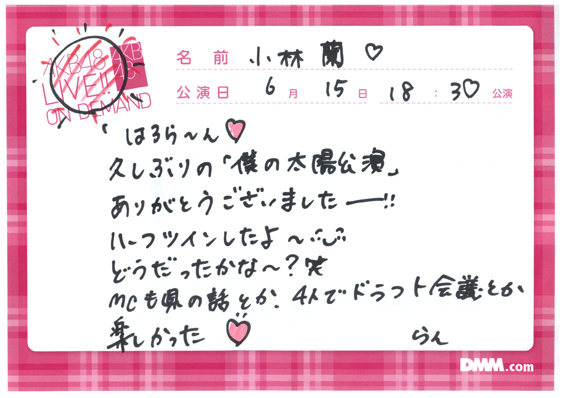 AKB48
LIVE!!
ON DEMAND
AKB
48
名前 小林 蘭 ♡
公演日 6月 15日 18:30公演
はろら〜ん♡
久しぶりの「僕の太陽公演」
ありがとうございましたー!!
ハーフツインしたよ〜
どうだったかな〜?笑
MCも県の話とか、4人でドラフト会議とか
楽しかった♡
らん
DMM.com